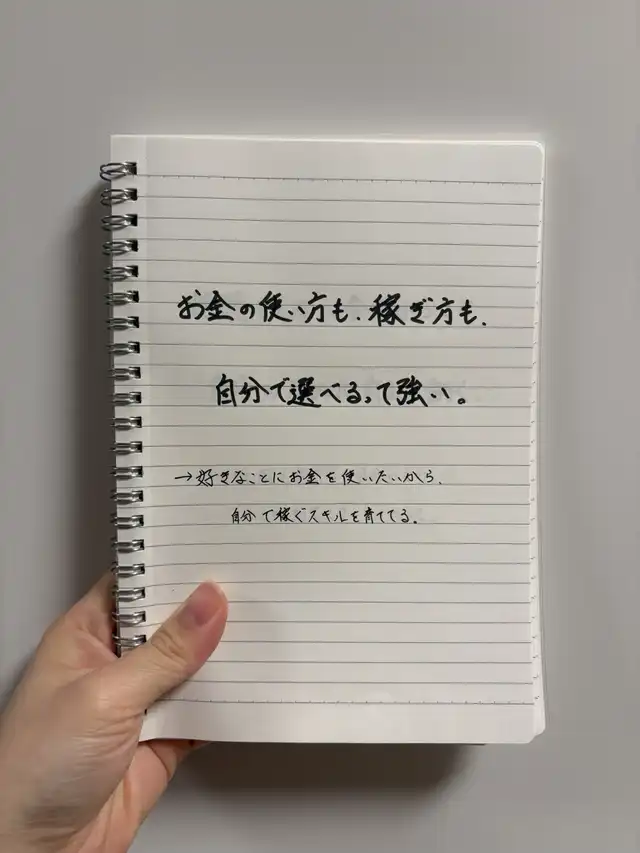 お金の使い方も、稼ぎ方も、
自分で選べるって強い。
→好きなことにお金を使いたいから、
自分で稼ぐスキルを育ててる。